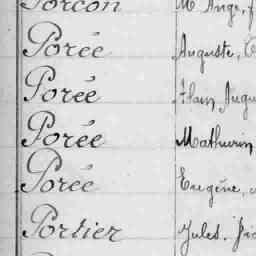 Porcon M. Ange, f
Porée Auguste,
Porée Alain, Augu
Porée Mathurin
Porée Eugène,
Portier Jules,